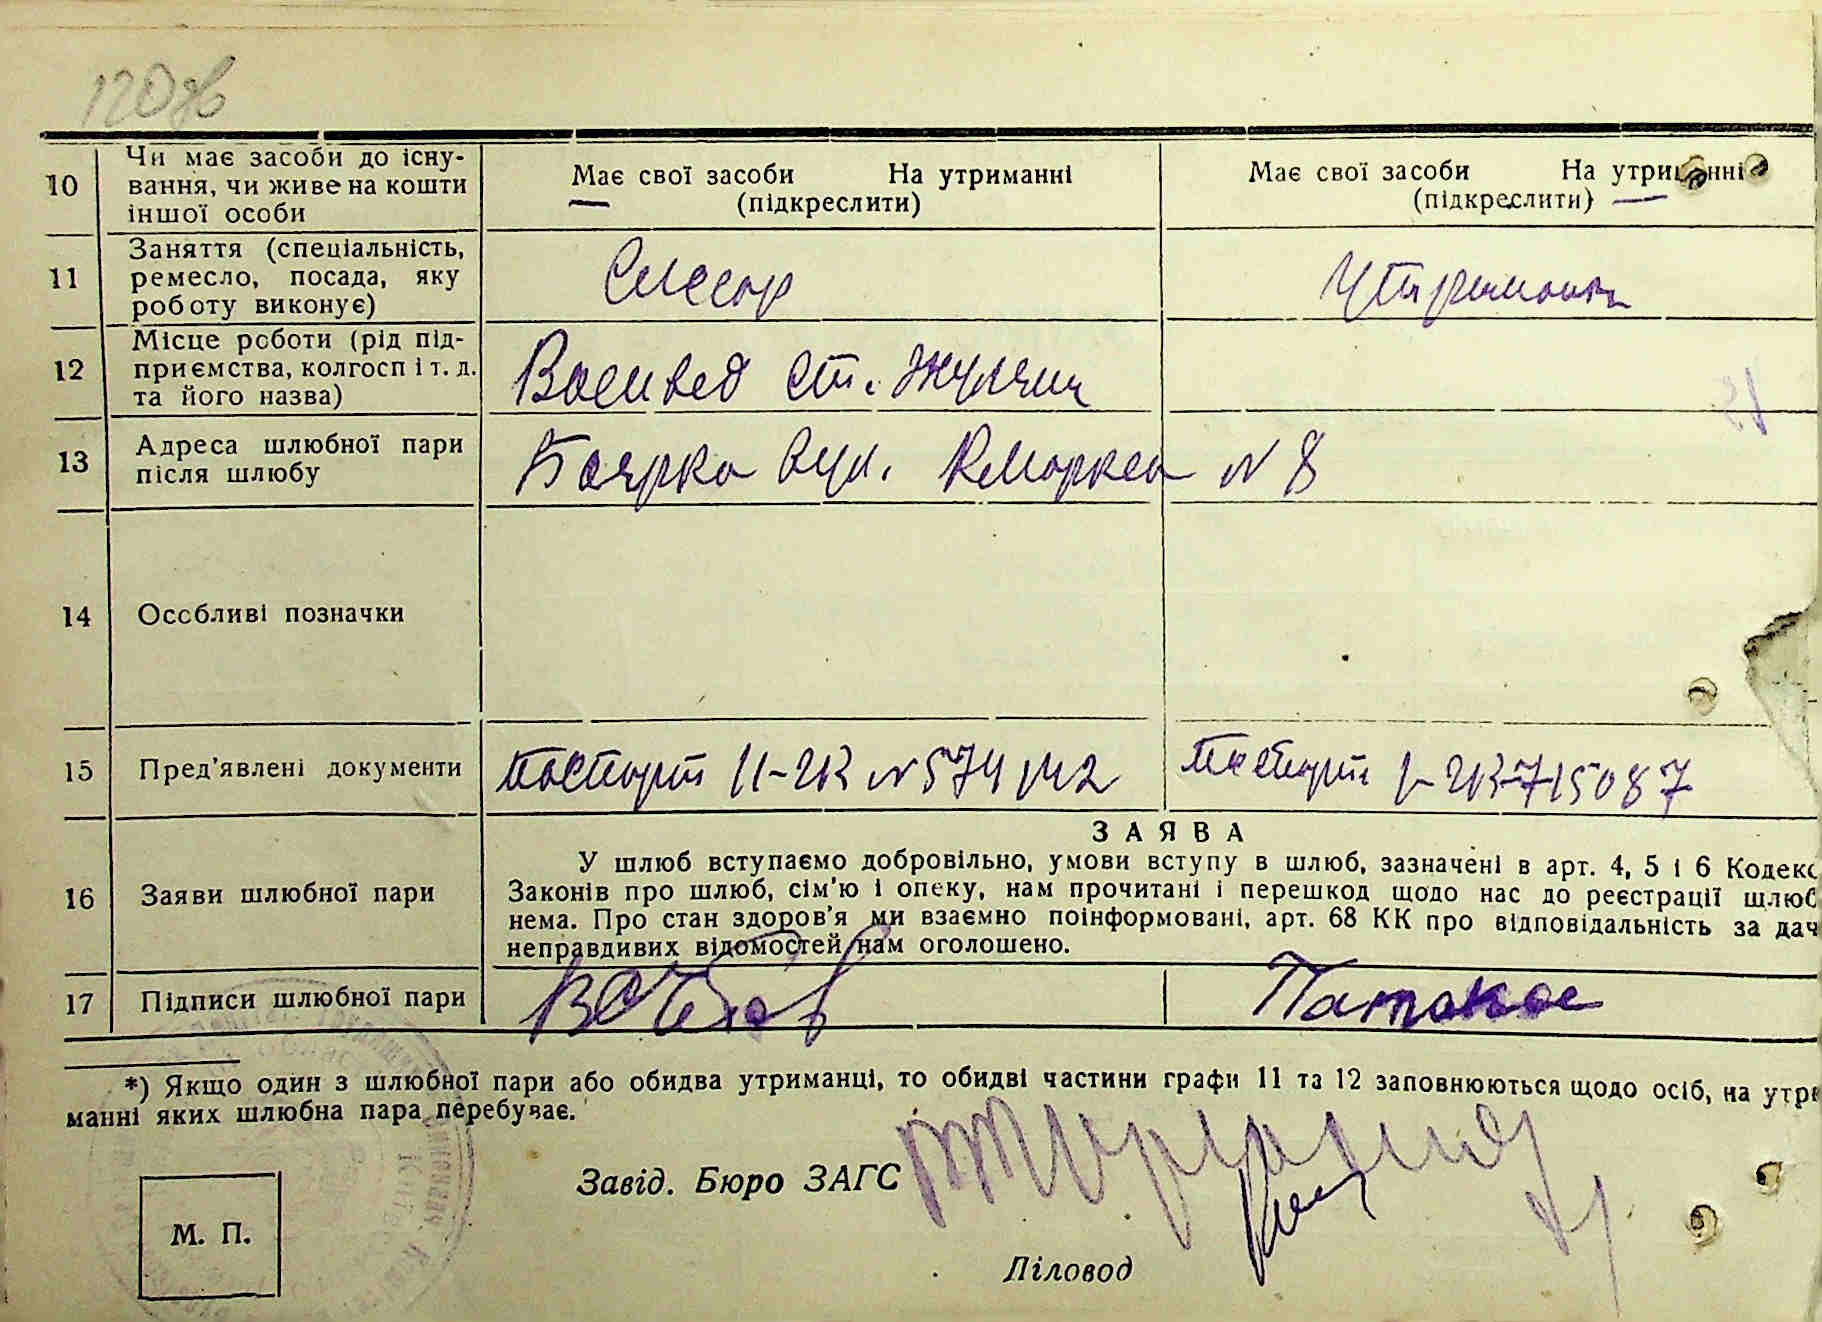 120зв
10 Чи має засоби до існу-
вання, чи живе на кошти
іншої особи
Має свої засоби На утриманні
(підкреслити)
Має свої засоби На утриманні
(підкреслити)
11 Заняття (спеціальність,
ремесло, посада, яку
роботу виконує)
Слесар
Утриманка
12 Місце роботи (рід під-
приємства, колгосп і т. д.
та його назва)
ст. Жуляни
13 Адреса шлюбної пари
після шлюбу
Боярка вул. К Маркса № 8
14 Особливі позначки
15 Пред'явлені документи
Паспорт II-УК № 574142
Паспорт I-УК 715087
16 Заяви шлюбної пари
ЗАЯВА
У шлюб вступаємо добровільно, умови вступу в шлюб, зазначені в арт. 4, 5 і 6 Кодекс
Законів про шлюб, сім'ю і опеку, нам прочитані і перешкод щодо нас до реєстрації шлюб
нема. Про стан здоров'я ми взаємно поінформовані, арт. 68 КК про відповідальність за дач
неправдивих відомостей нам оголошено.
17 Підписи шлюбної пари
*) Якщо один з шлюбної пари або обидва утриманці, то обидві частини графи 11 та 12 заповнюються щодо осіб, на утри
манні яких шлюбна пара перебуває.
Завід. Бюро ЗАГС
М. П.
Діловод